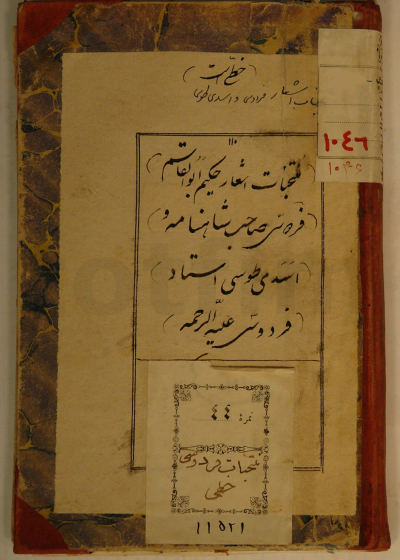 (خطی است)
اشعار فردوسی و اسدی طوسی
١٠٤٦
١١٠
(منتخبات اشعار حکیم ابوالقاسم)
(فردوسی صاحب شاهنامه و)
(اسدی طوسی استاد
(فردوسی علیه الرحمه)
نمره ٤٤
منتخبات فردوسی
خطی
١١٥٢١